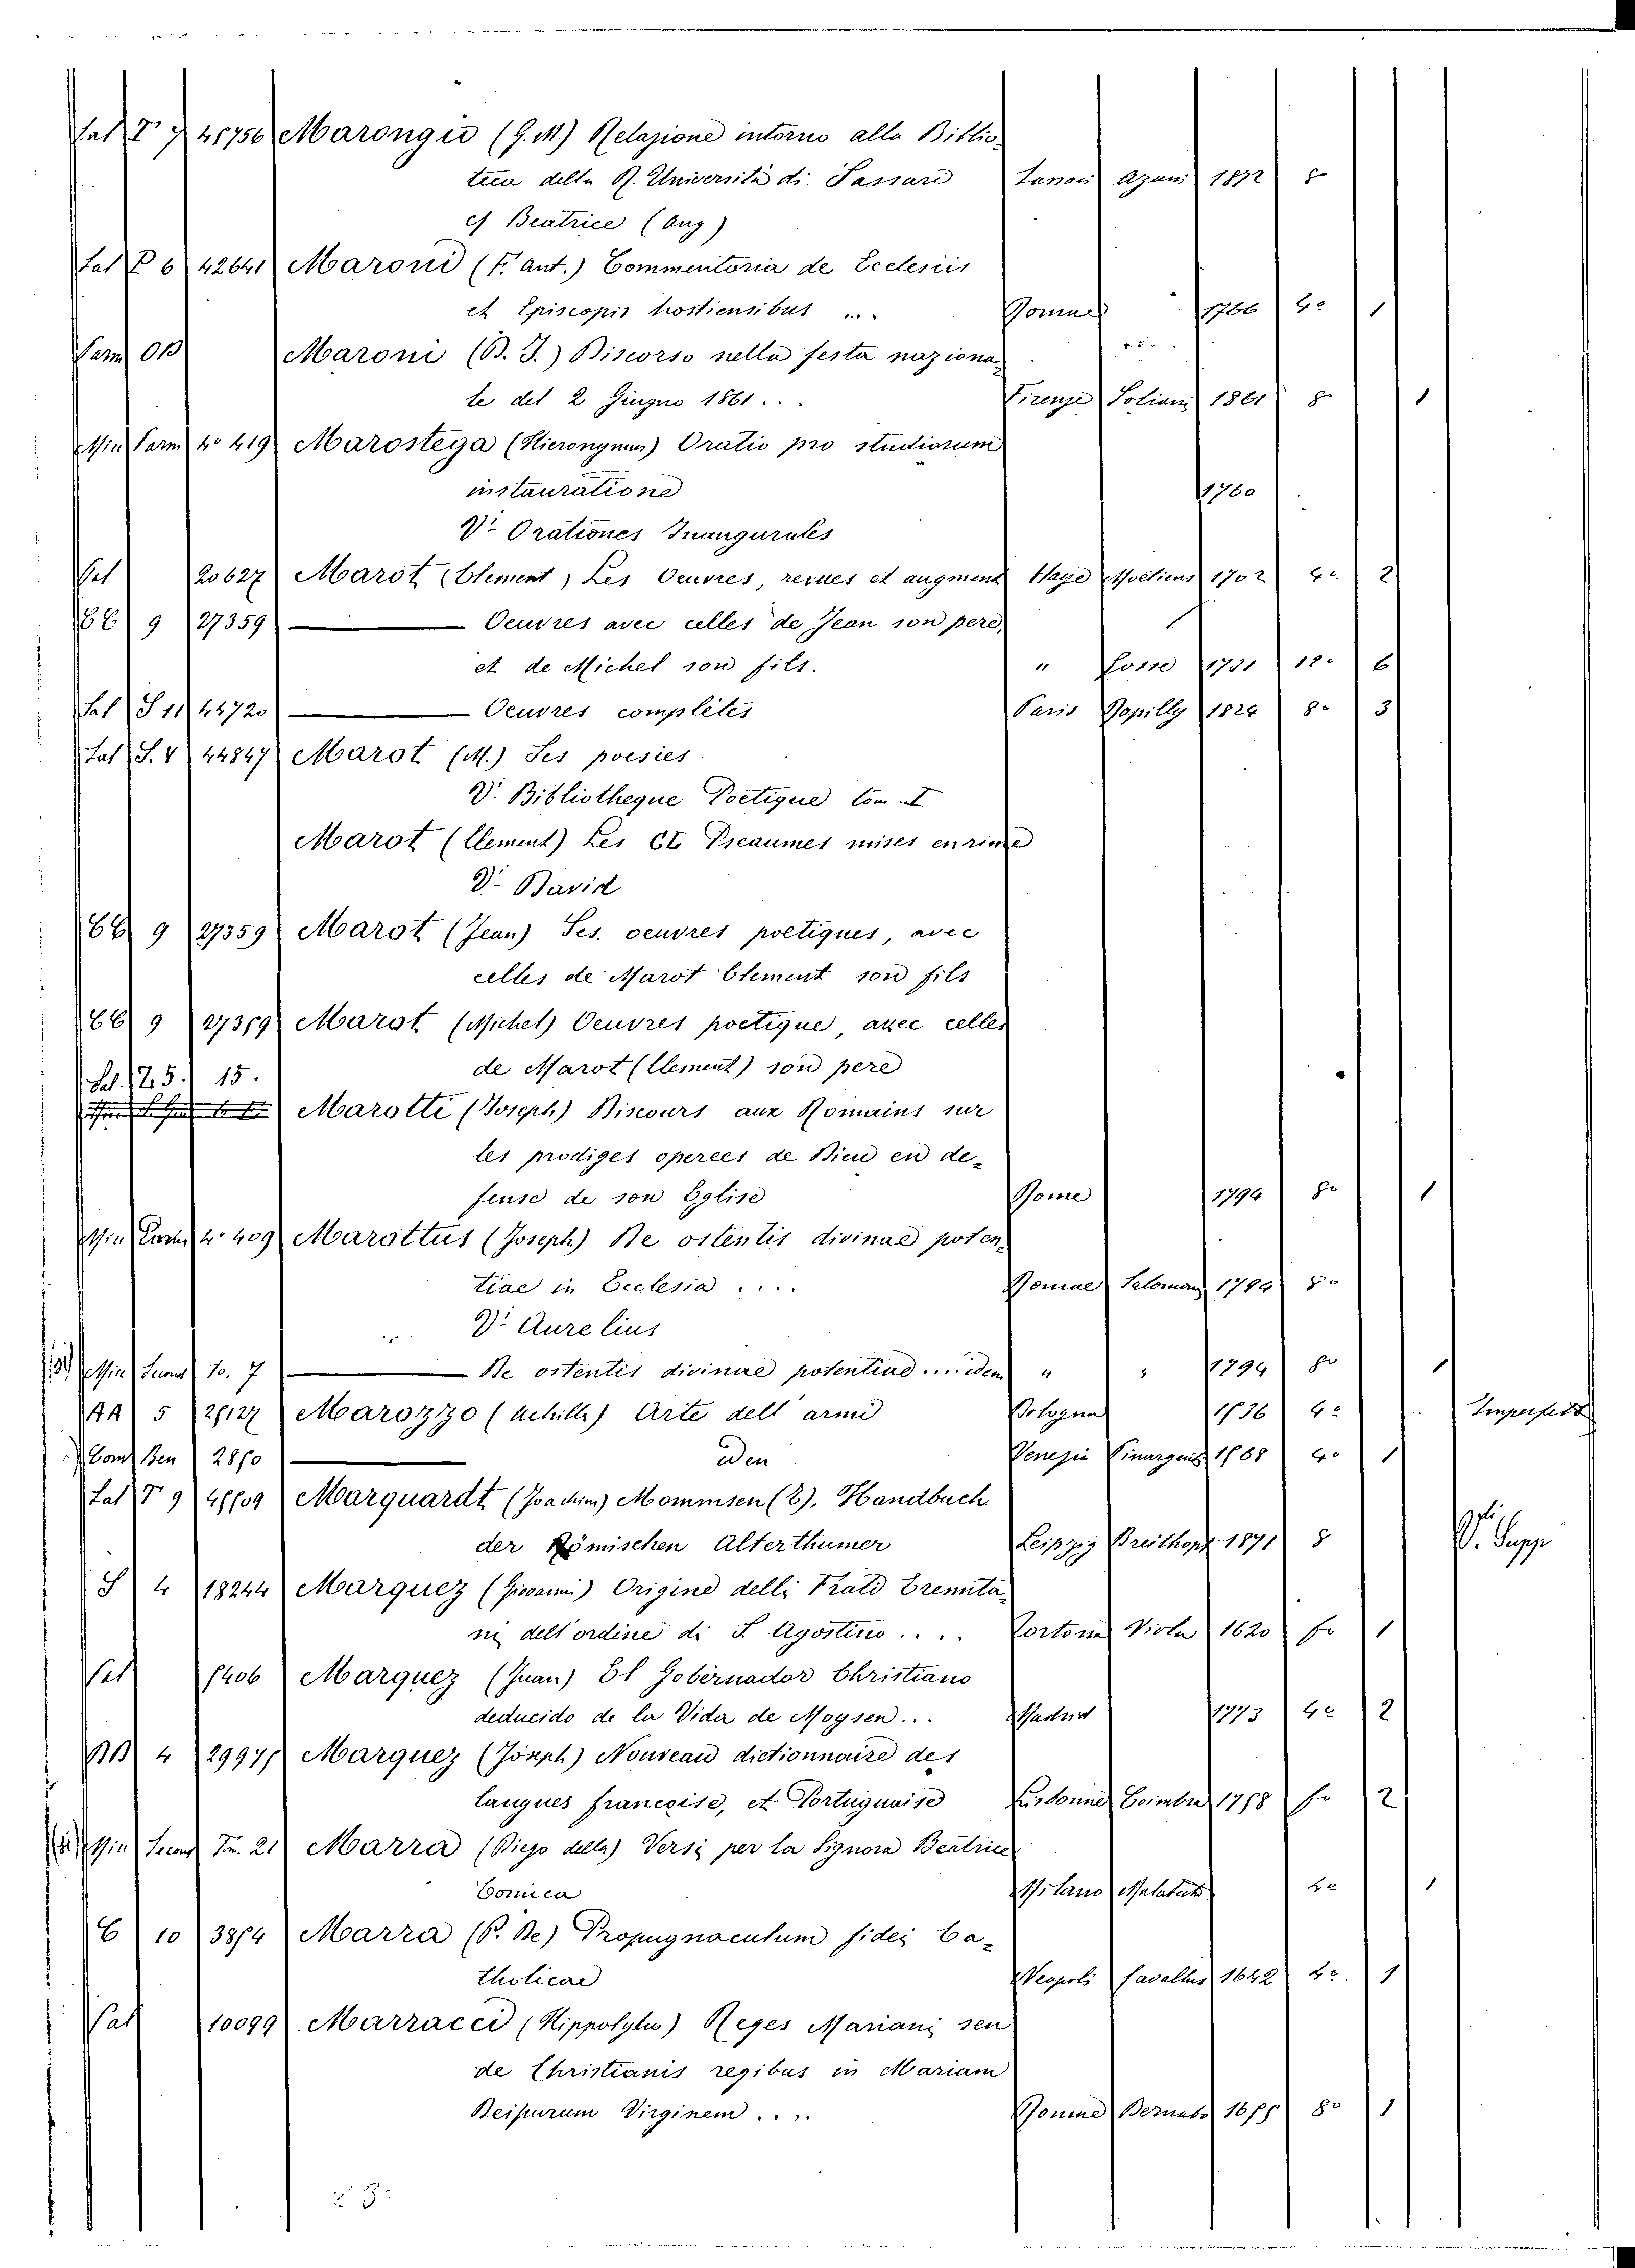 Sal T 7 45756 Marongiu (G. M.) Relazione intorno alla Biblio-
teca della R. Università di Sassari Sassari Azuni 1872 8
cf Beatrice (Aug)
Sal P 6 42641 Maroni (F. Ant.) Commentaria de Ecclesiis
et Episcopis hostiensibus ... Romae 1766 4° 1
Maroni (B. J.) Discorso nella festa naziona
le del 2 Giugno 1861 ... Firenze Soliani 1861 8 1
Min Carm 4° 419 Marostega (Hieronymus) Oratio pro studiorum
instauratione 1760
V. Orationes Inaugurales
20627 Marot (Clement) Les Oeuvres, revues et augment Haye Moetiens 1702 4° 2
9 27359 Oeuvres avec celles de Jean son pere,
et de Michel son fils. " Gosse 1731 12° 6
Sal S 11 44720 Oeuvres complètes Paris Rapilly 1824 8° 3
Sal S. V 44847 Marot (M.) Ses poesies
V. Bibliotheque Poetique tom. I
Marot (Clement) Les CL Pseaumes mises en rime
V. David
9 27359 Marot (Jean) Ses. oeuvres poetiques, avec
celles de Marot Clement son fils
9 27359 Marot (Michel) Oeuvres poetique, avec celles
de Marot (Clement) son pere
Sal. Z. 5. 15.
Marotti (Joseph) Discours aux Romains sur
les prodiges operees de Dieu en de-
fense de son Eglise Rome 1794 8° 1
Min Carm 4° 409 Marottus (Joseph) De ostentis divinae poten-
tiae in Ecclesia .... Romae Salomoni 1794 8°
V. Aurelius
Min 10. 7 De ostentis divinae potentiae .... idem " " 1794 8° 1
AA 5 Marozzo (Achille) Arte dell' armi Bologna 1536 4° Imperfetto
iden Venezia 1568 4° 1
Sal T 9 Marquardt (Joachim) Mommsen (T). Handbuch
der Römischen Alterthumer Leipzig Breitkopf 1871 8
S 4 18244 Marquez (Giovanni) Origine delli Frati Eremita-
ni dell'ordine di S. Agostino .... Tortona Viola 1620 1
Marquez (Juan) El Gobernador Christiano
deducido de la Vida de Moysen ... Madrid 1773 4° 2
4 Marquez (Joseph) Nouveau dictionnaire des
langues francoise, et Portuguaise 2
Min 21 Marra (Diego della) Versi per la Signora Beatrice
Comica Milano Malatesta 4° 1
10 Marra (P. De) Propugnaculum fidei Ca-
tholicae Neapoli Cavallus 1642 4° 1
10099 Marracci (Hippolytus) Reges Mariani seu
de Christianis regibus in Mariam
Deiparam Virginem .... Romae Bernabo 8° 1